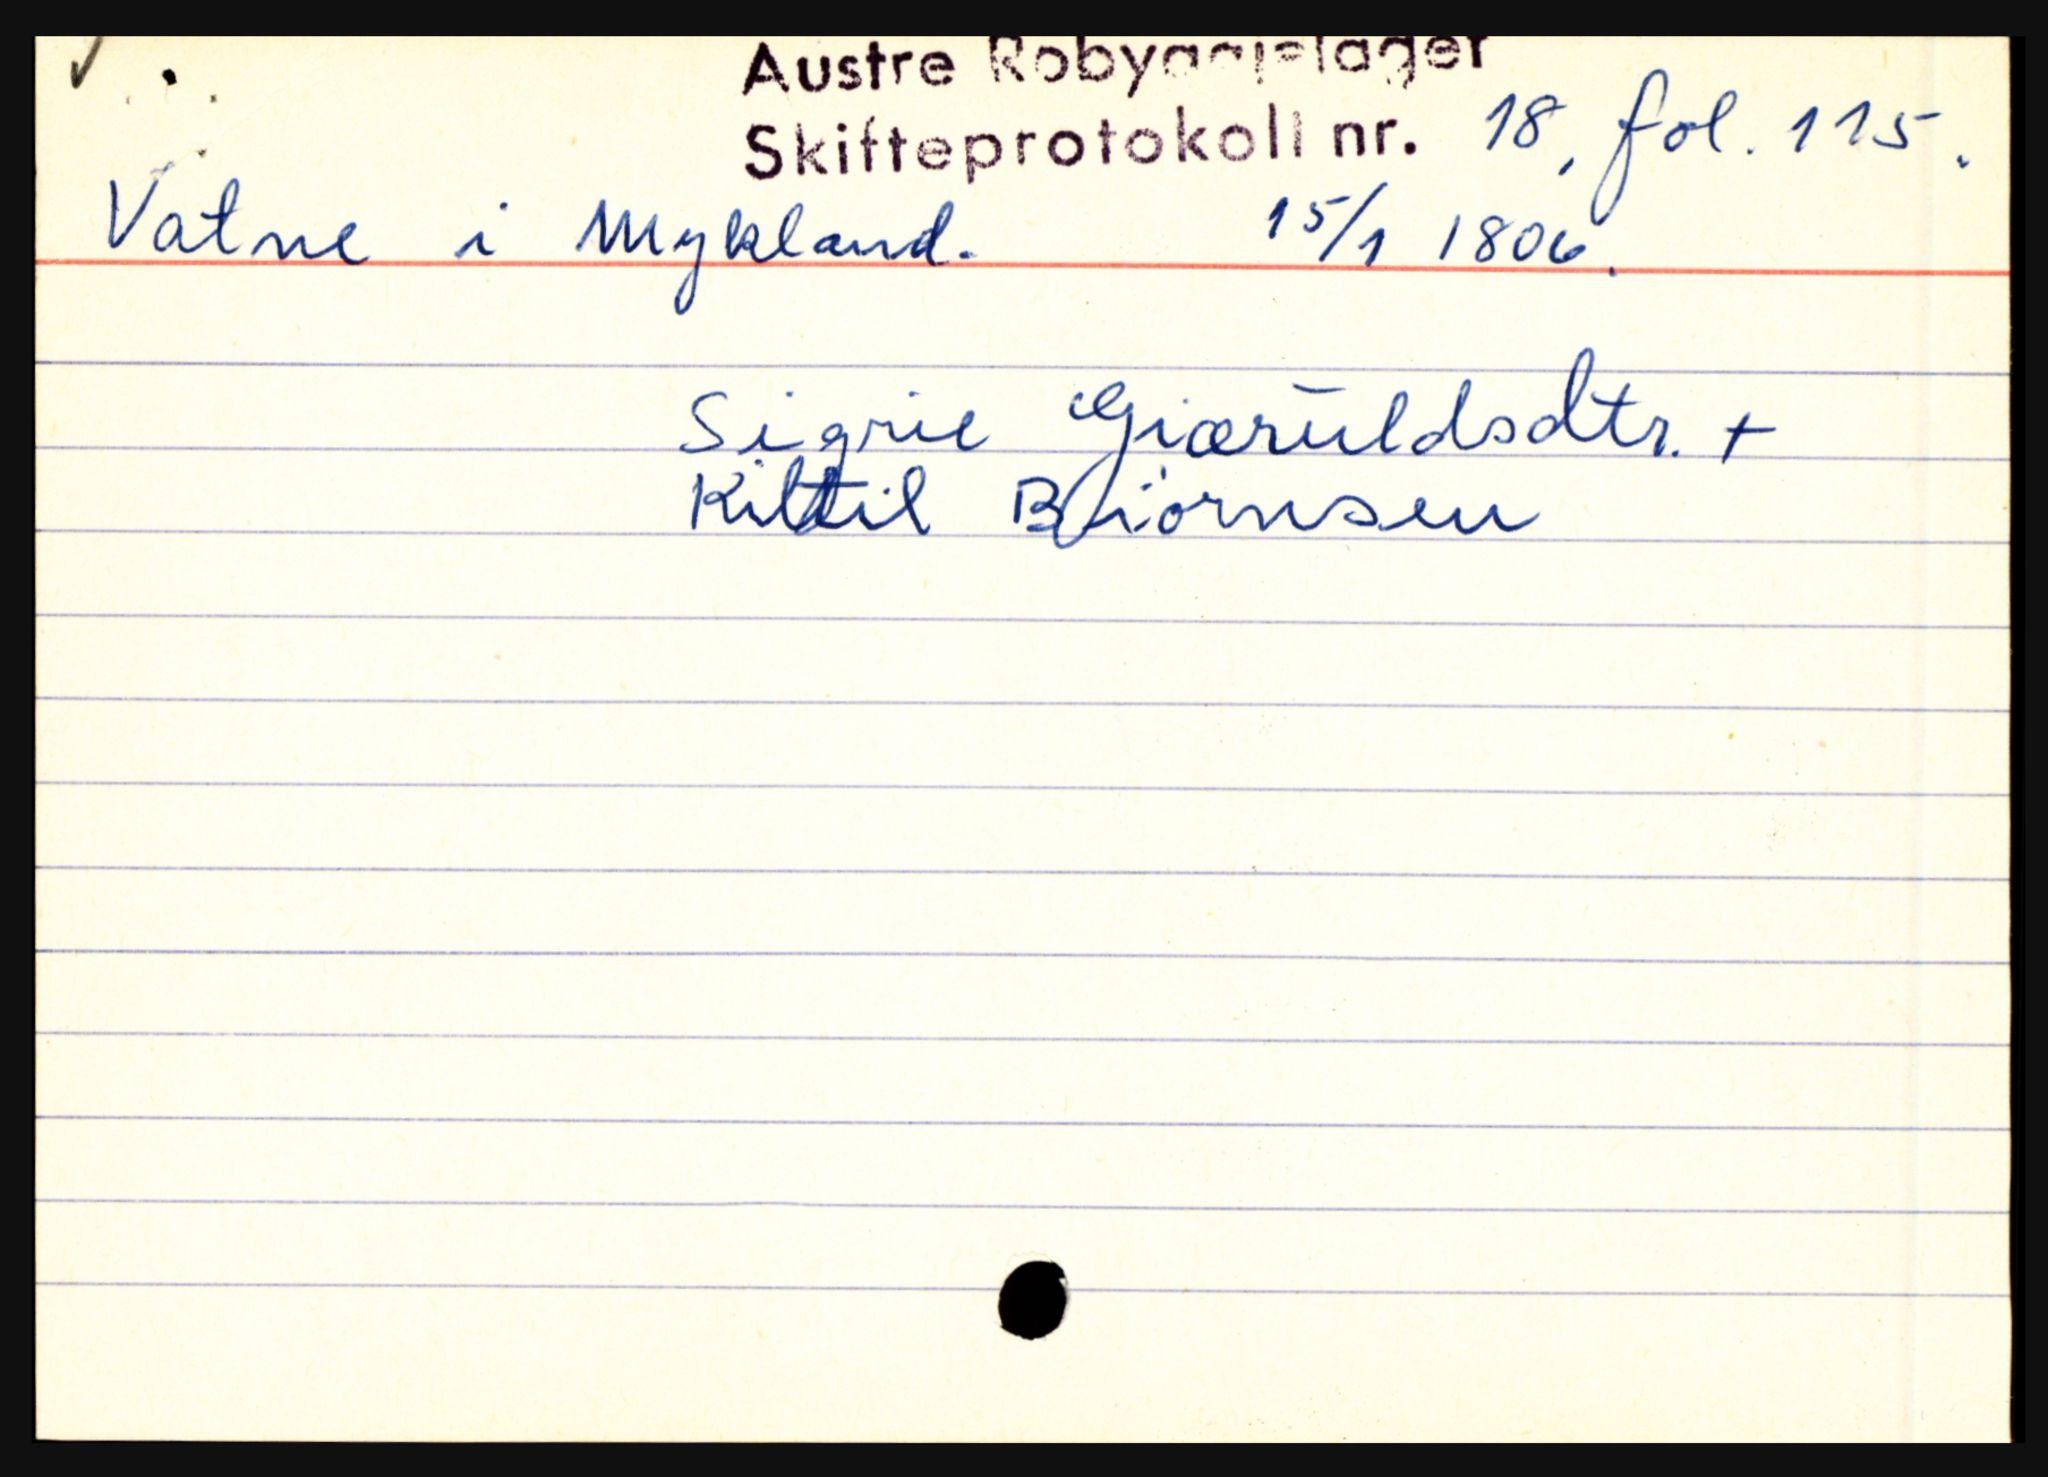 Austre Robyggjelager
Skifteprotokoll nr. 18, fol. 115.
Vatne i Mykland. 15/1 1806.
Sigrie Giæruldsdtr. +
Kittil Biörnsen